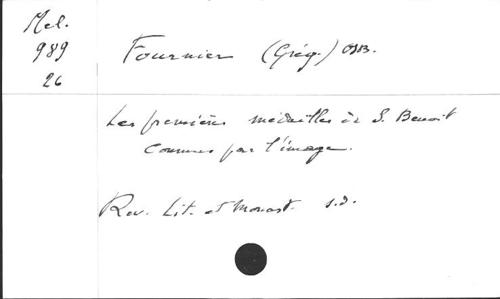 Mel.
989
26
Fournier (Grég.) OSB.
Les premières médailles de S. Benoit
connues par l'image.
Rev. Lit. et Monast. s.d.